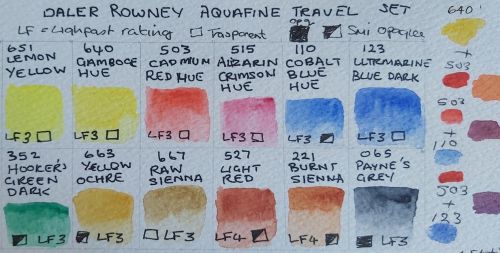 DALER ROWNEY AQUAFINE TRAVEL SET
LF = Lightfast rating Trasparent Smi Opaque
651 LEMON YELLOW
LF3
640 GAMBOGE HUE
LF3
503 CADMIUM RED HUE
LF3
515 ALIZARIN CRIMSON HUE
LF3
110 COBALT BLUE HUE
LF3
123 ULTRAMARINE BLUE DARK
LF3
352 HOOKER'S GREEN DARK
LF3
663 YELLOW OCHRE
LF3
667 RAW SIENNA
LF3
527 LIGHT RED
LF4
221 BURNT SIENNA
LF4
065 PAYNE'S GREY
LF3
640
+
503
+
110
503
+
123